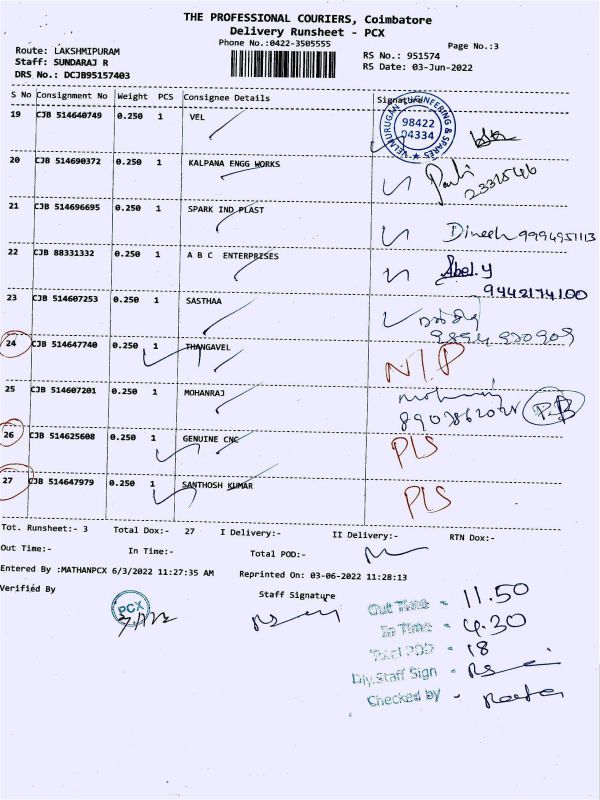 THE PROFESSIONAL COURIERS, Coimbatore
Delivery Runsheet - PCX
Phone No.:0422-3505555
Page No.:3
Route: LAKSHMIPURAM
RS No.: 951574
Staff: SUNDARAJ R
RS Date: 03-Jun-2022
DRS No.: DCJB95157403
S No Consignment No Weight PCS Consignee Details Signature
19 CJB 514640749 0.250 1 VEL
VELMURUGAN ENGINEERING & SPARES
98422
04334
20 CJB 514690372 0.250 1 KALPANA ENGG WORKS
21 CJB 514696695 0.250 1 SPARK IND PLAST Dinesh 9994951113
22 CJB 88331332 0.250 1 A B C ENTERPRISES Abel.y
9442174100
23 CJB 514607253 0.250 1 SASTHAA
24 CJB 514647740 0.250 1 THANGAVEL N/P
25 CJB 514607201 0.250 1 MOHANRAJ
26 CJB 514625608 0.250 1 GENUINE CNC PLS
27 CJB 514647979 0.250 1 SANTHOSH KUMAR PLS
Tot. Runsheet:- 3 Total Dox:- 27 I Delivery:- II Delivery:- RTN Dox:-
Out Time:- In Time:- Total POD:-
Entered By :MATHANPCX 6/3/2022 11:27:35 AM Reprinted On: 03-06-2022 11:28:13
Verified By Staff Signature
PCX
Out Time - 11.50
In Time - 4.30
Total POD - 18
Dly.Staff Sign -
Checked by -